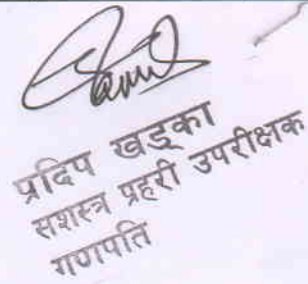 प्रदिप खड्का
सशस्त्र प्रहरी उपरीक्षक
गणपति